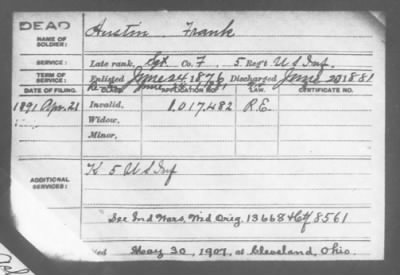 DEAD
NAME OF SOLDIER:
Austin Frank
SERVICE:
Late rank, Sgt Co. F, 5 Reg't U S Inf.
TERM OF SERVICE:
Enlisted June 24, 1876 Discharged June 20 1881
DATE OF FILING. CLASS. APPLICATION NO. LAW. CERTIFICATE NO.
1891 Apr. 21 Invalid, 1.017.482 R.E.
Widow,
Minor,
ADDITIONAL SERVICES:
K 5 U S Inf
See Ind Wars, Wid Orig. 13668 + Ctf 8561
Died May 30, 1907, at Cleveland, Ohio.